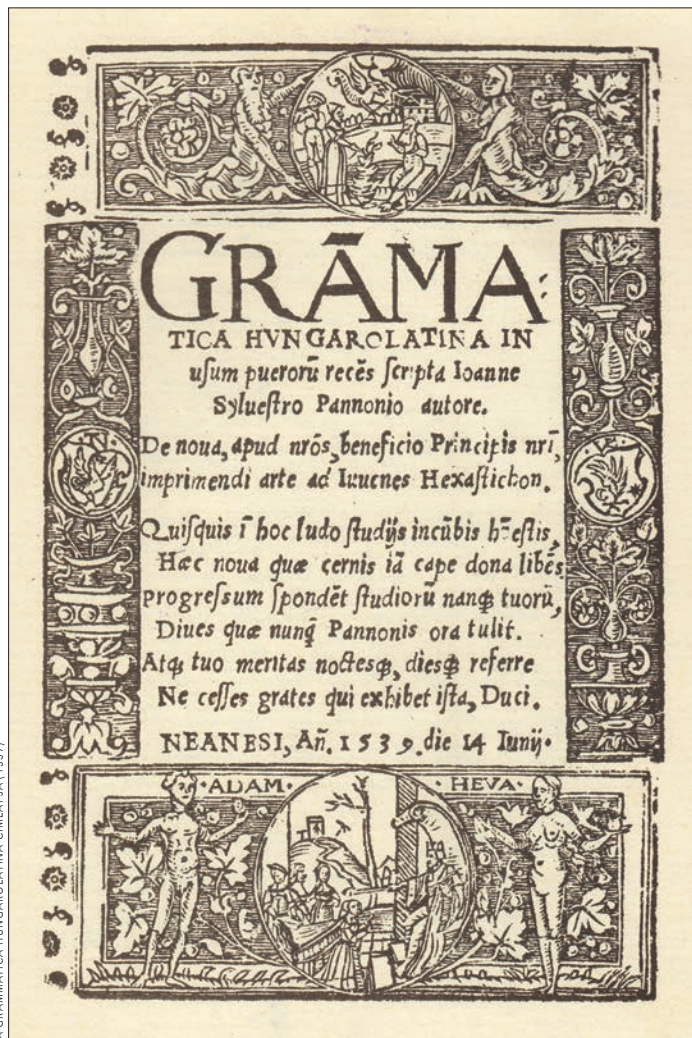 GRĀMA:
TICA HVNGAROLATINA IN
uſum puerorũ recẽs ſcripta Ioanne
Sylueſtro Pannonio autore.
De noua, apud nrõs, beneficio Principis nrĩ,
imprimendi arte ad Iuuenes Hexaſtichon.
Quiſquis ĩ hoc ludo ſtudijs incũbis hõeſtis,
Hæc noua quæ cernis iã cape dona libẽs
progreſsum ſpondẽt ſtudiorũ nanq̃ tuorũ,
Diues quæ nunq̃ Pannonis ora tulit.
Atq̃ tuo meritas noctesq̃, diesq̃ referre
Ne ceſſes grates qui exhibet iſta, Duci.
NEANESI, Añ. 1539. die 14 Iunij.
·ADAM· HEVA·
A GRAMMATICA HUNGAROLATINA CÍMLAPJA (1539)